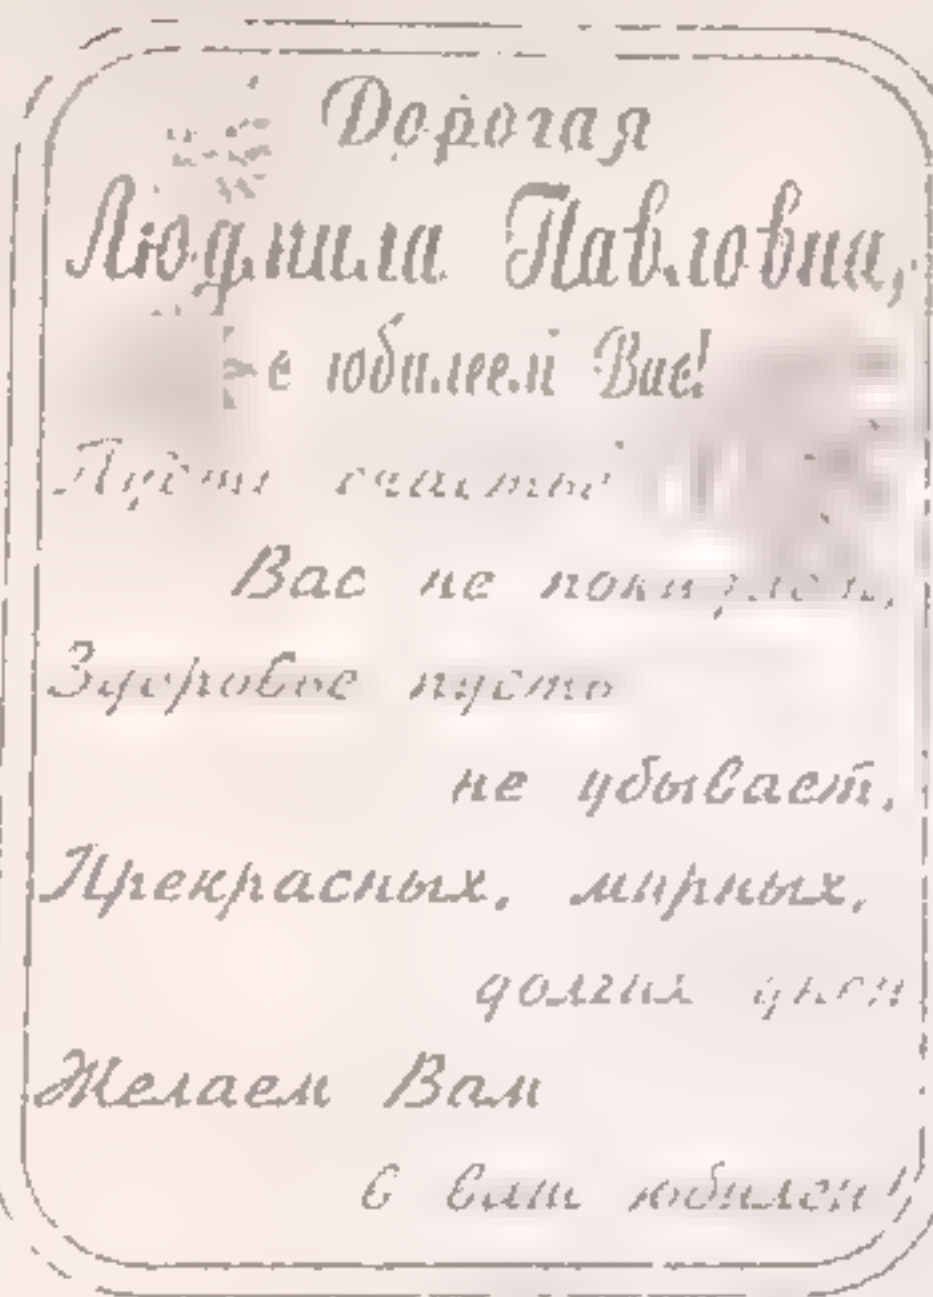 Дорогая
Людмила Павловна,
с юбилеем Вас!
Пусть счастье
Вас не покидает,
Здоровье пусть
не убывает,
Прекрасных, мирных,
долгих дней
Желаем Вам
в Ваш юбилей!